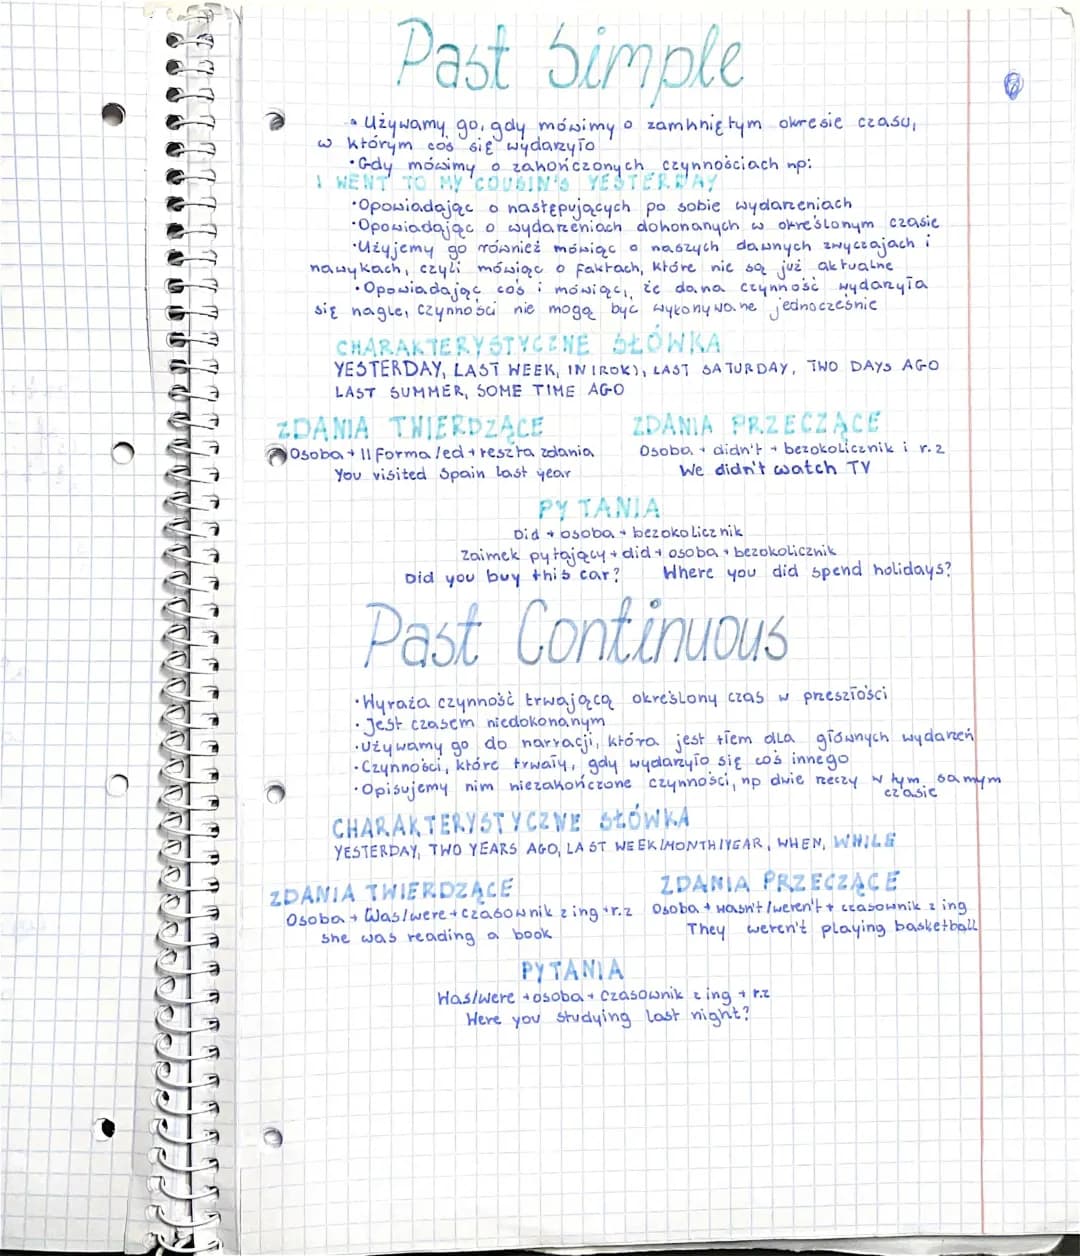 Past Simple
• Używamy go, gdy mówimy o zamkniętym okresie czasu,
w którym coś się wydarzyło
• Gdy mówimy o zakończonych czynnościach np:
I WENT TO MY COUSIN'S YESTERDAY
• Opowiadając o następujących po sobie wydarzeniach
• Opowiadając o wydarzeniach dokonanych w określonym czasie
• Użyjemy go również mówiąc o naszych dawnych zwyczajach i
nawykach, czyli mówiąc o faktach, które nie są już aktualne
• Opowiadając coś i mówiąc, że dana czynność wydarzyła
się nagle, czynności nie mogą być wykonywane jednocześnie
CHARAKTERYSTYCZNE SŁÓWKA
YESTERDAY, LAST WEEK, IN (ROK), LAST SATURDAY, TWO DAYS AGO
LAST SUMMER, SOME TIME AGO
ZDANIA TWIERDZĄCE
Osoba + II forma /ed + reszta zdania
You visited Spain last year
ZDANIA PRZECZĄCE
Osoba + didn't + bezokolicznik i r.z
We didn't watch TV
PYTANIA
Did + osoba + bezokolicznik
Zaimek pytający + did + osoba + bezokolicznik
Did you buy this car? Where you did spend holidays?
Past Continuous
• Wyraża czynność trwającą określony czas w przeszłości
• Jest czasem niedokonanym
• Używamy go do narracji, która jest tłem dla głównych wydarzeń
• Czynności, które trwały, gdy wydarzyło się coś innego
• Opisujemy nim niezakończone czynności, np dwie rzeczy w tym samym
czasie
CHARAKTERYSTYCZNE SŁÓWKA
YESTERDAY, TWO YEARS AGO, LAST WEEK/MONTH/YEAR, WHEN, WHILE
ZDANIA TWIERDZĄCE
Osoba + Was/were + czasownik z ing + r.z
She was reading a book
ZDANIA PRZECZĄCE
Osoba + wasn't/weren't + czasownik z ing
They weren't playing basketball
PYTANIA
Was/were + osoba + czasownik z ing + r.z
Were you studying last night?